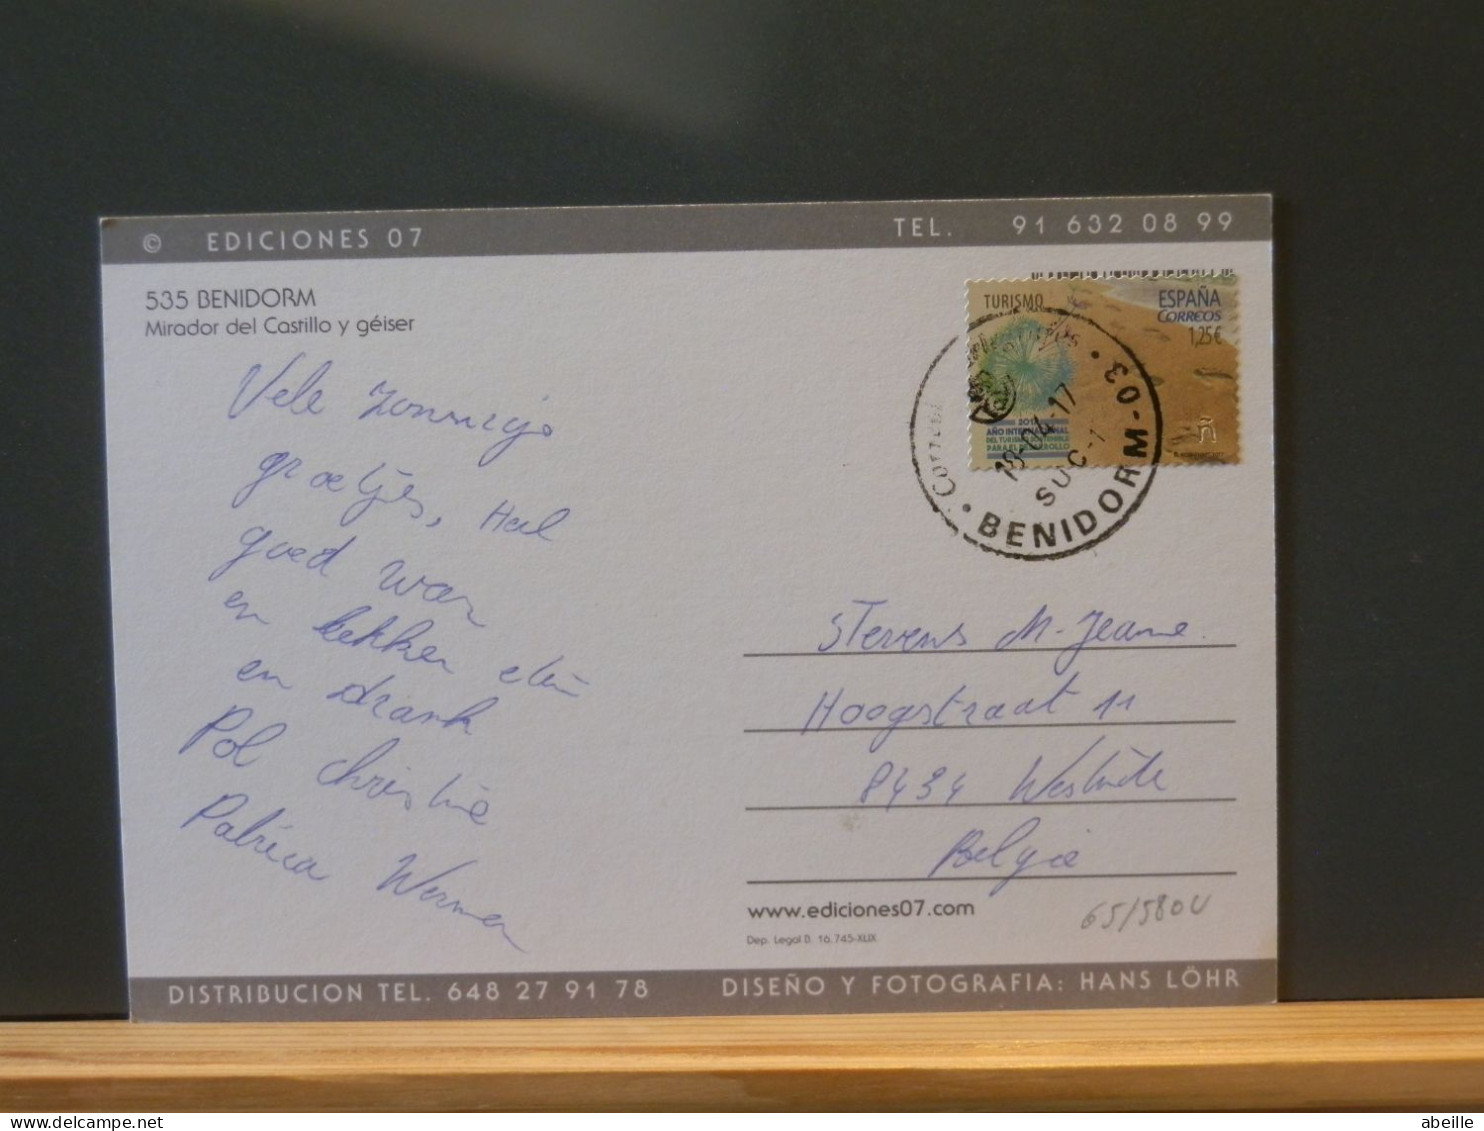 © EDICIONES 07 TEL. 91 632 08 99
535 BENIDORM
Mirador del Castillo y géiser
TURISMO
ESPAÑA
CORREOS
1,25€
AÑO INTERNACIONAL
DEL TURISMO SOSTENIBLE
PARA EL DESARROLLO
-04-17
SUC-
BENIDORM-03
Vele
groetjes, Heel
goed war
en lekker eten
en drank
Pol Christine
Patricia Werner
Stevens M-Jeanne.
Hoogstraat 11
8434 Westende
Belgie
www.ediciones07.com
65/580U
Dep. Legal B. 16.745-XLIX
DISTRIBUCION TEL. 648 27 91 78 DISEÑO Y FOTOGRAFIA: HANS LÖHR
delcampe.net
abeille